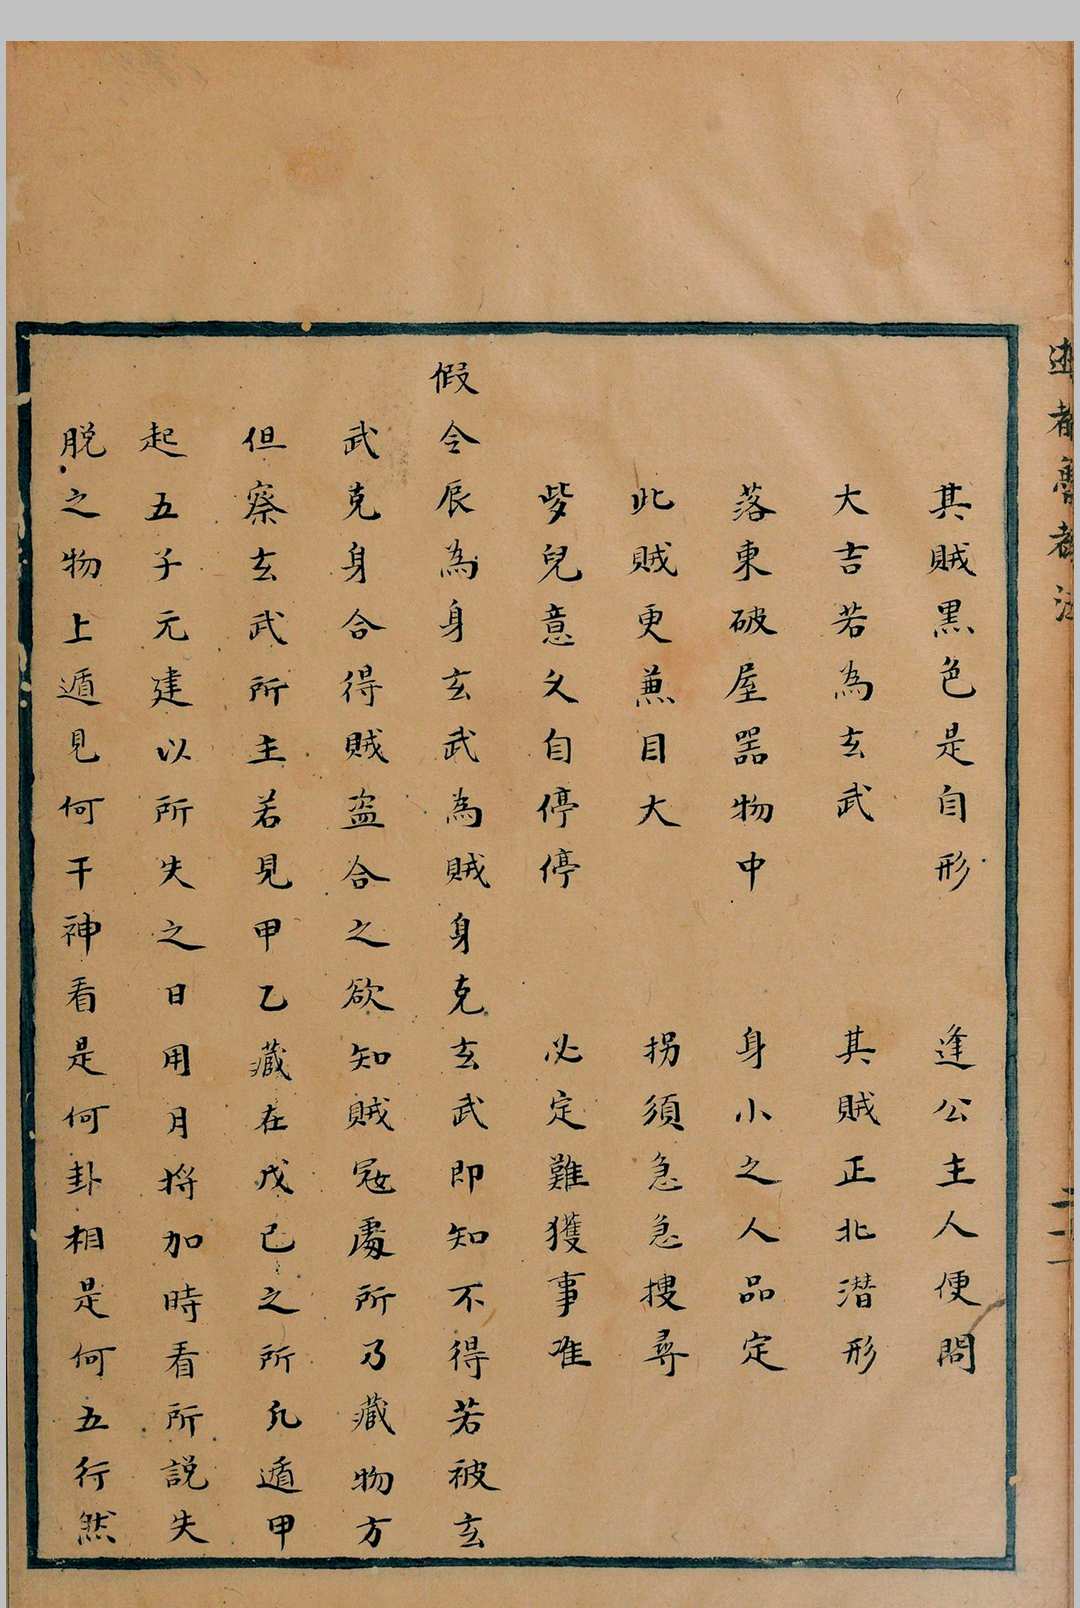 其賊黑色是自形　逢公主人便問
大吉若為玄武　其賊正北潛形
落東破屋噐物中　身小之人品定
此賊更兼目大　拐須急急搜尋
兒意又自停停　必定難獲事准
假令辰為身玄武為賊身克玄武即知不得若被玄
武克身合得賊盗合之欲知賊冦處所乃藏物方
但察玄武所主若見甲乙藏在戊己之所凡遁甲
起五子元建以所失之日用月将加時看所説失
脱之物上遁見何干神看是何卦相是何五行然
都魯都